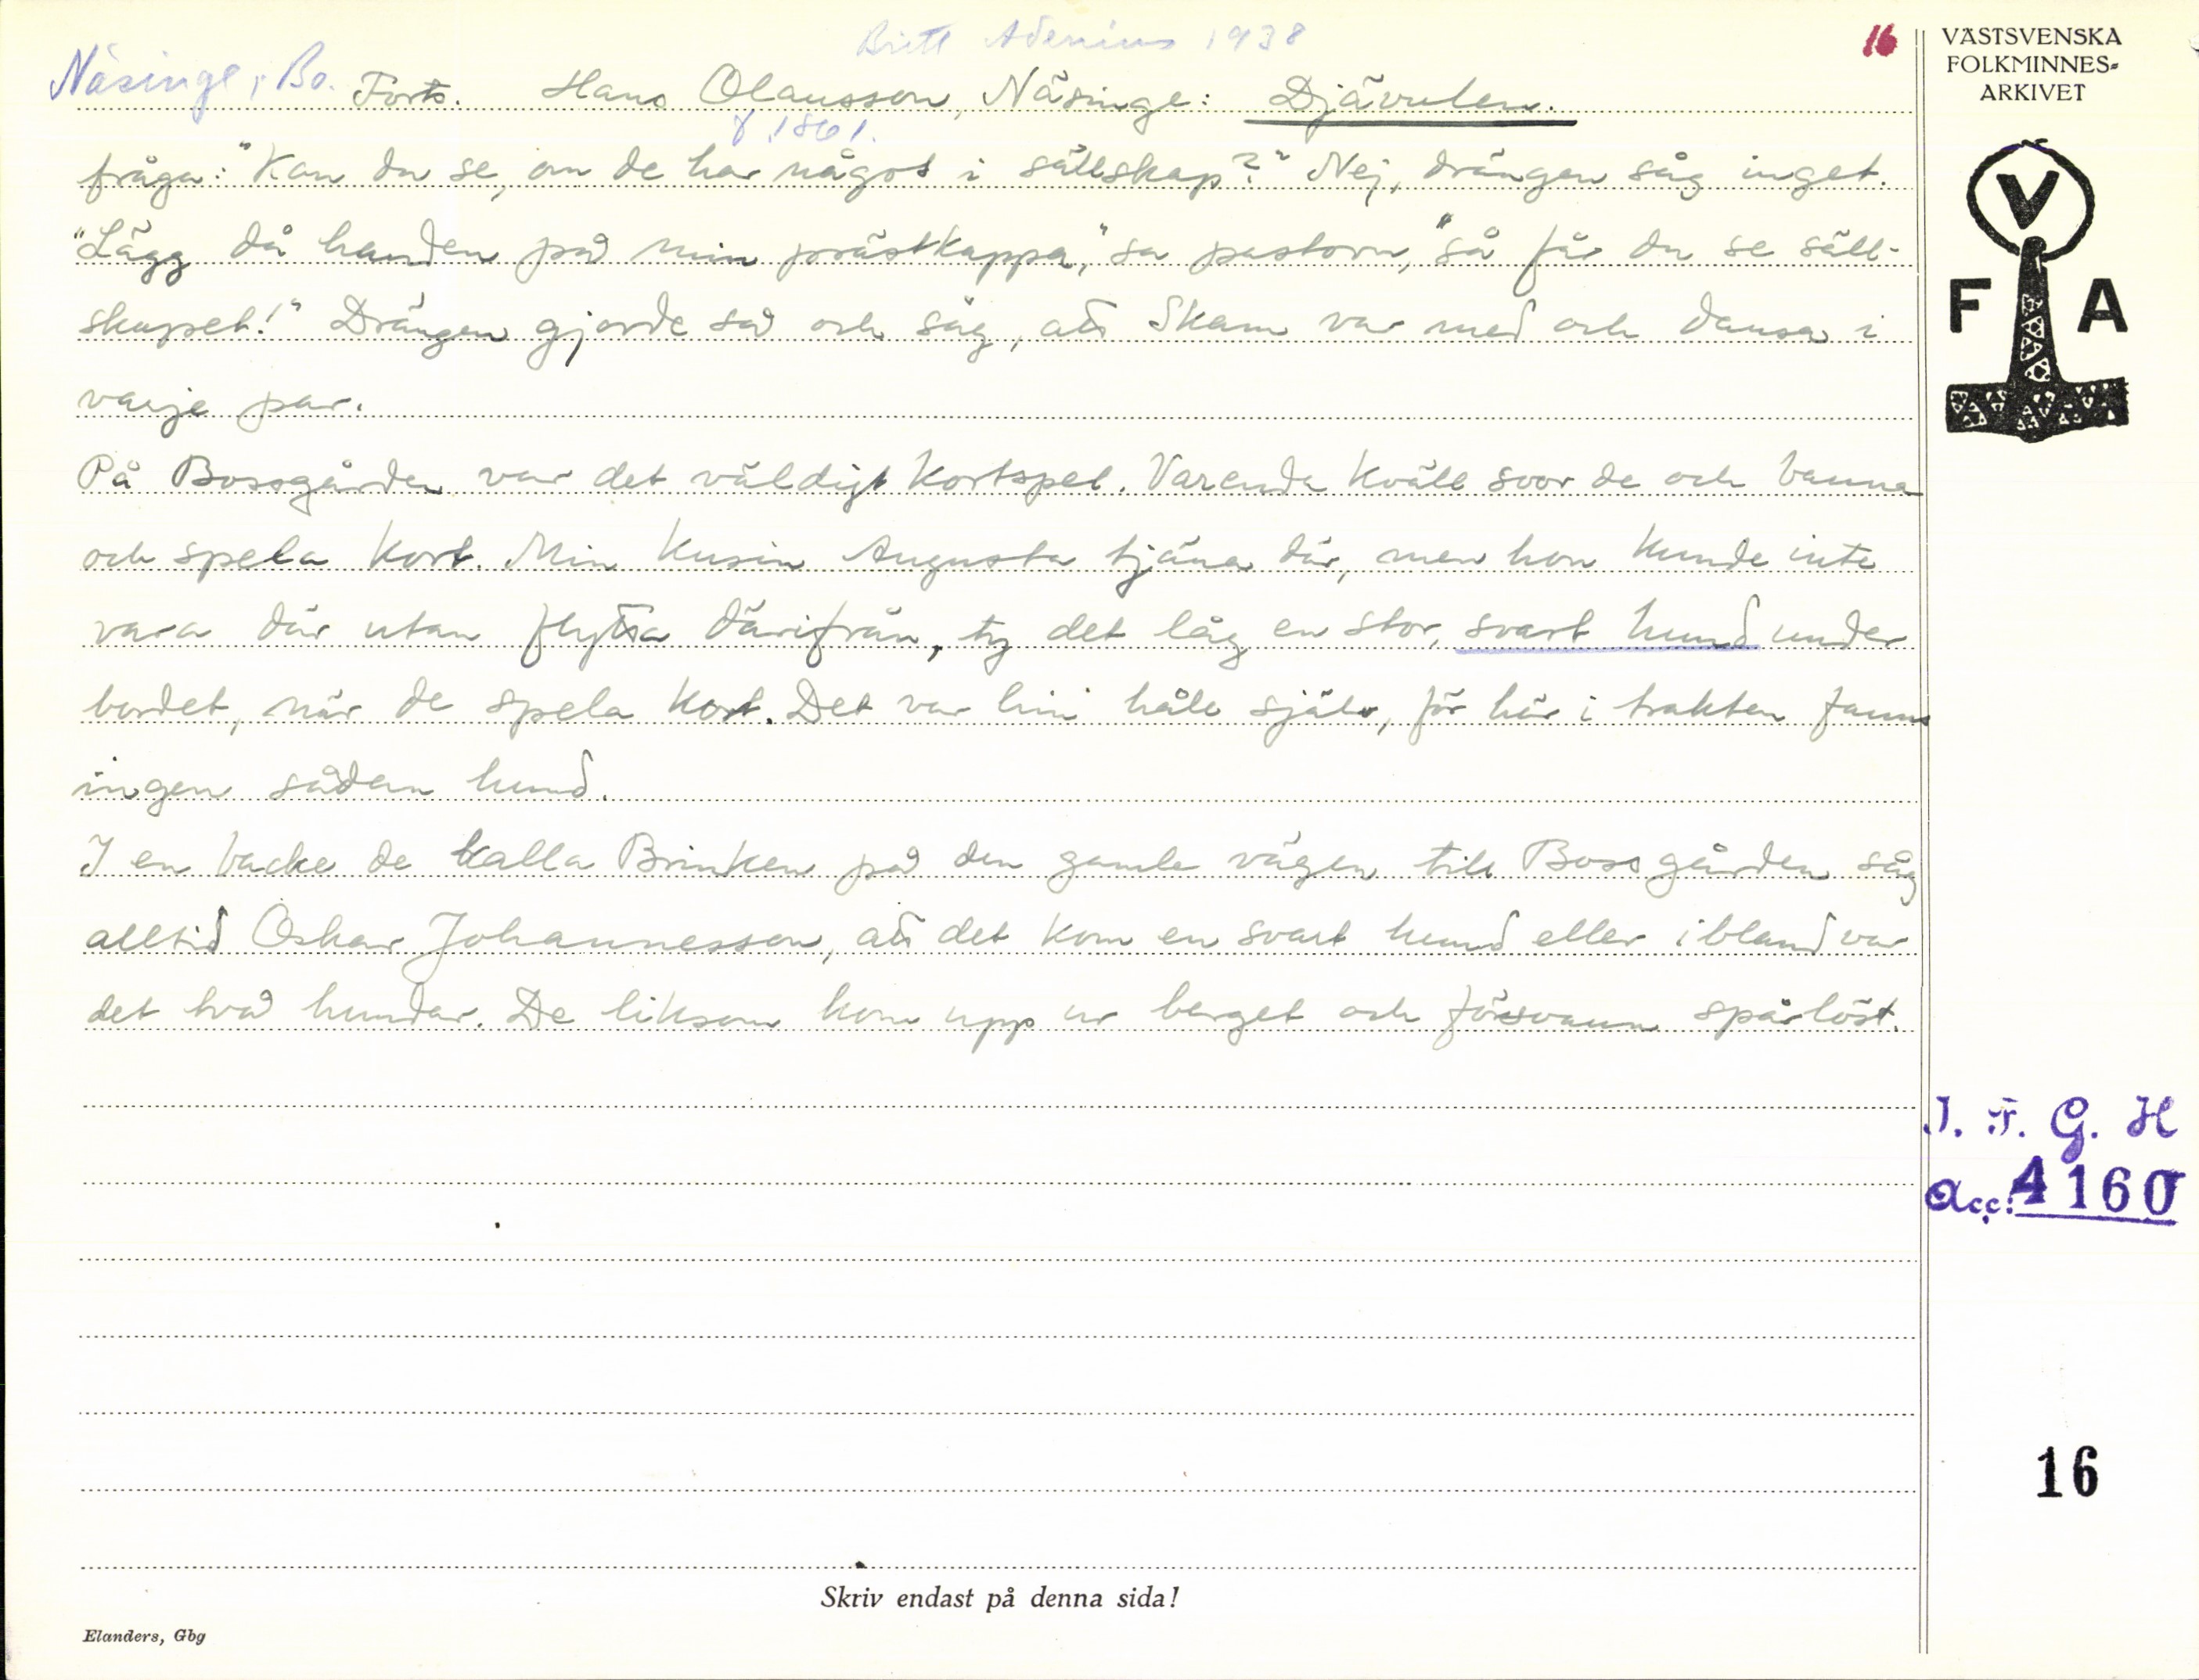 Britt Adenius 1938
16
Näsinge, Bo. Forts. Hans Olausson, Näsinge: Djävulen.
f. 1861.
fråga: "Kan du se, om de har något i sällskap?" Nej, drängen såg inget.
"Lägg då handen på min prästkappa," sa pastorn, "så får du se säll-
skapet!" Drängen gjorde så och såg, att Skam var med och dansa i
varje par.
På Bossgården var det väldigt kortspel. Varenda kväll svor de och banna
och spela kort. Min kusin Augusta tjäna där, men hon kunde inte
vara där utan flytta därifrån, ty det låg en stor, svart hund under
bordet, när de spela kort. Det var hin håle själv, för här i trakten fanns
ingen sådan hund.
I en backe de kalla Brinken på den gamle vägen till Bossgården såg
alltid Oskar Johannesson, att det kom en svart hund eller ibland var
det två hundar. De liksom kom upp ur berget och försvann spårlöst.
Skriv endast på denna sida!
Elanders, Gbg
VÄSTSVENSKA
FOLKMINNES-
ARKIVET
V
F A
I. F. G. H
Acc: 4160
16